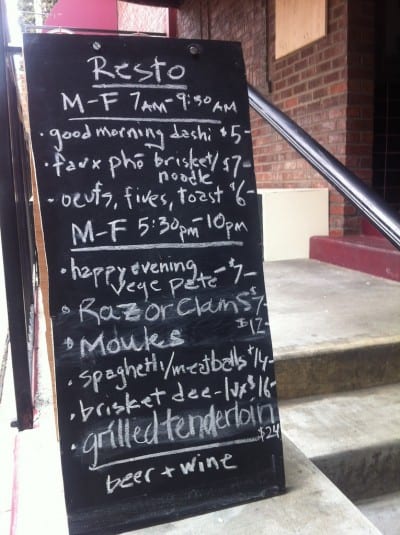 Resto
M-F 7AM-9:30AM
· good morning dashi $5-
· faux phô brisket/ $7-
noodle
· oeufs, fives, toast $6-
M-F 5:30pm-10pm
· happy evening
vege pate - $7-
· Razor Clams $7-
· Moules $12-
· spaghetti/meatballs $14-
· brisket dee-lux $16-
· grilled tenderloin
$24
beer + wine